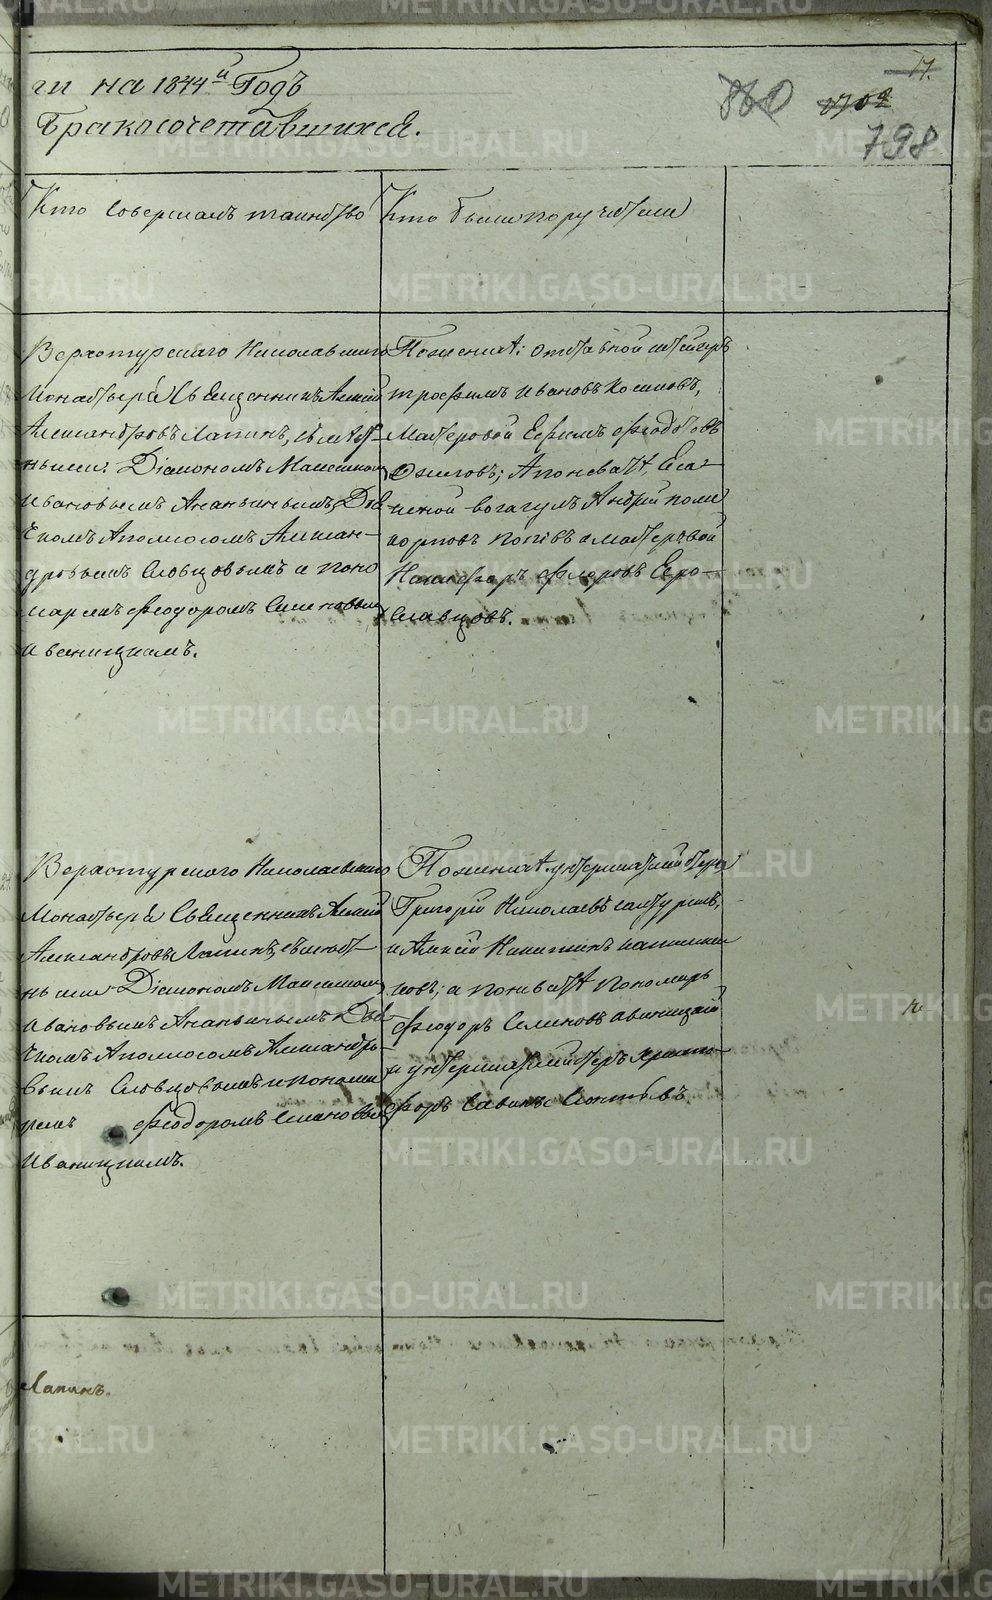 ги на 1844й Годъ
Бракосочетавшихся.
17.
860 1702
798
Кто совершалъ таинство
Кто были поручители
Верхотурского Николаевского
Монастыря Священникъ Алексѣй
Александровъ Лапинъ, съ мѣст-
ными Діакономъ Максимомъ
Ивановымъ Ананьинымъ, Дья
чкомъ Аполлосомъ Алексан-
дровымъ Словцовымъ и поно
маремъ Феодоромъ Симеоновымъ
Иваницкимъ.
По женихѣ: отставной
трофимъ Ивановъ
Мастеровой Ефимъ
Ожеговъ; А по невѣстѣ
Андрей поли
карповъ Поповъ и мастеровой
Никифоръ Флоровъ Яро-
славцовъ.
Верхотурского Николаевского
Монастыря Священникъ Алексѣй
Александровъ Лапинъ, съ мѣст-
ными Діакономъ Максимомъ
Ивановымъ Ананьинымъ Дья
чкомъ Аполлосомъ Александро-
вымъ Словцовымъ и понома
ремъ Феодоромъ Симеоновымъ
Иваницкимъ.
По женихѣ унтершихтмейстеръ
Григорій Николаевъ
и Алексѣй Никитинъ
ковъ; а по невѣстѣ Пономарь
Феодоръ Семеновъ Иваницкій
и унтершихтмейстеръ Христо-
форъ Савинъ
Лапинъ.
METRIKI.GASO-URAL.RU